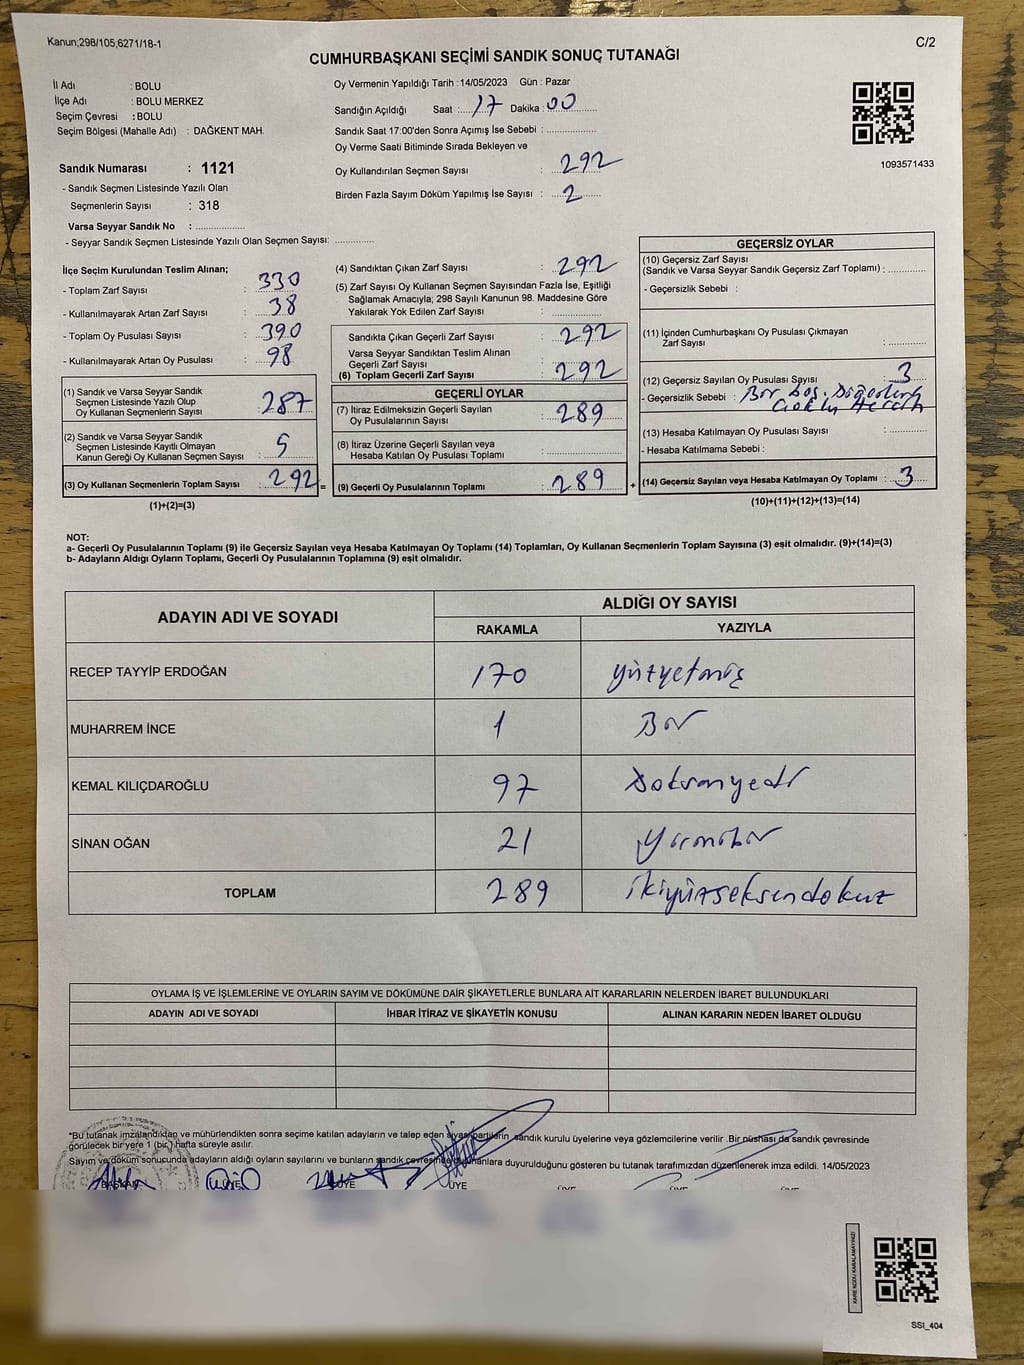 Kanun;298/105;6271/18-1
C/2
CUMHURBAŞKANI SEÇİMİ SANDIK SONUÇ TUTANAĞI
İl Adı : BOLU
İlçe Adı : BOLU MERKEZ
Seçim Çevresi : BOLU
Seçim Bölgesi (Mahalle Adı) : DAĞKENT MAH.
Sandık Numarası : 1121
- Sandık Seçmen Listesinde Yazılı Olan
Seçmenlerin Sayısı : 318
Varsa Seyyar Sandık No : ................
- Seyyar Sandık Seçmen Listesinde Yazılı Olan Seçmen Sayısı: .............
Oy Vermenin Yapıldığı Tarih : 14/05/2023 Gün : Pazar
Sandığın Açıldığı Saat : 17 Dakika : 00
Sandık Saat 17:00'den Sonra Açımış İse Sebebi : ................
Oy Verme Saati Bitiminde Sırada Bekleyen ve
Oy Kullandırılan Seçmen Sayısı : 292
Birden Fazla Sayım Döküm Yapılmış İse Sayısı : 2
1093571433
İlçe Seçim Kurulundan Teslim Alınan;
- Toplam Zarf Sayısı : 330
- Kullanılmayarak Artan Zarf Sayısı : 38
- Toplam Oy Pusulası Sayısı : 390
- Kullanılmayarak Artan Oy Pusulası : 98
(1) Sandık ve Varsa Seyyar Sandık
Seçmen Listesinde Yazılı Olup
Oy Kullanan Seçmenlerin Sayısı : 287
(2) Sandık ve Varsa Seyyar Sandık
Seçmen Listesinde Kayıtlı Olmayan
Kanun Gereği Oy Kullanan Seçmen Sayısı : 5
(3) Oy Kullanan Seçmenlerin Toplam Sayısı : 292 =
(1)+(2)=(3)
(4) Sandıktan Çıkan Zarf Sayısı : 292
(5) Zarf Sayısı Oy Kullanan Seçmen Sayısından Fazla İse, Eşitliği
Sağlamak Amacıyla; 298 Sayılı Kanunun 98. Maddesine Göre
Yakılarak Yok Edilen Zarf Sayısı : ................
Sandıkta Çıkan Geçerli Zarf Sayısı : 292
Varsa Seyyar Sandıktan Teslim Alınan
Geçerli Zarf Sayısı
(6) Toplam Geçerli Zarf Sayısı : 292
GEÇERLİ OYLAR
(7) İtiraz Edilmeksizin Geçerli Sayılan
Oy Pusulalarının Sayısı : 289
(8) İtiraz Üzerine Geçerli Sayılan veya
Hesaba Katılan Oy Pusulası Toplamı : ................
(9) Geçerli Oy Pusulalarının Toplamı : 289 +
GEÇERSİZ OYLAR
(10) Geçersiz Zarf Sayısı
(Sandık ve Varsa Seyyar Sandık Geçersiz Zarf Toplamı) : .............
- Geçersizlik Sebebi :
(11) İçinden Cumhurbaşkanı Oy Pusulası Çıkmayan
Zarf Sayısı : .............
(12) Geçersiz Sayılan Oy Pusulası Sayısı : 3
- Geçersizlik Sebebi : Bir boş. Diğerleri
(13) Hesaba Katılmayan Oy Pusulası Sayısı : .............
- Hesaba Katılmama Sebebi :
(14) Geçersiz Sayılan veya Hesaba Katılmayan Oy Toplamı : 3
(10)+(11)+(12)+(13)=(14)
NOT:
a- Geçerli Oy Pusulalarının Toplamı (9) ile Geçersiz Sayılan veya Hesaba Katılmayan Oy Toplamı (14) Toplamları, Oy Kullanan Seçmenlerin Toplam Sayısına (3) eşit olmalıdır. (9)+(14)=(3)
b- Adayların Aldığı Oyların Toplamı, Geçerli Oy Pusulalarının Toplamına (9) eşit olmalıdır.
ADAYIN ADI VE SOYADI
ALDIĞI OY SAYISI
RAKAMLA YAZIYLA
RECEP TAYYİP ERDOĞAN 170 yüzyetmiş
MUHARREM İNCE 1 Bir
KEMAL KILIÇDAROĞLU 97 Doksanyedi
SİNAN OĞAN 21 Yirmibir
TOPLAM 289 ikiyüzseksendokuz
OYLAMA İŞ VE İŞLEMLERİNE VE OYLARIN SAYIM VE DÖKÜMÜNE DAİR ŞİKAYETLERLE BUNLARA AİT KARARLARIN NELERDEN İBARET BULUNDUKLARI
ADAYIN ADI VE SOYADI İHBAR İTİRAZ VE ŞİKAYETİN KONUSU ALINAN KARARIN NEDEN İBARET OLDUĞU
*Bu tutanak imzalandıktan ve mühürlendikten sonra seçime katılan adayların ve talep eden siyasi partilerin sandık kurulu üyelerine veya gözlemcilerine verilir. Bir nüshası da sandık çevresinde
görülecek bir yere 1 (bir) hafta süreyle asılır.
Sayım ve döküm sonucunda adayların aldığı oyların sayılarını ve bunların sandık çevresinde bulunanlara duyurulduğunu gösteren bu tutanak tarafımızdan düzenlenerek imza edildi. 14/05/2023
BAŞKAN ÜYE ÜYE ÜYE ÜYE ÜYE ÜYE
KARE KODU KARALAMAYINIZ!
SSI_404